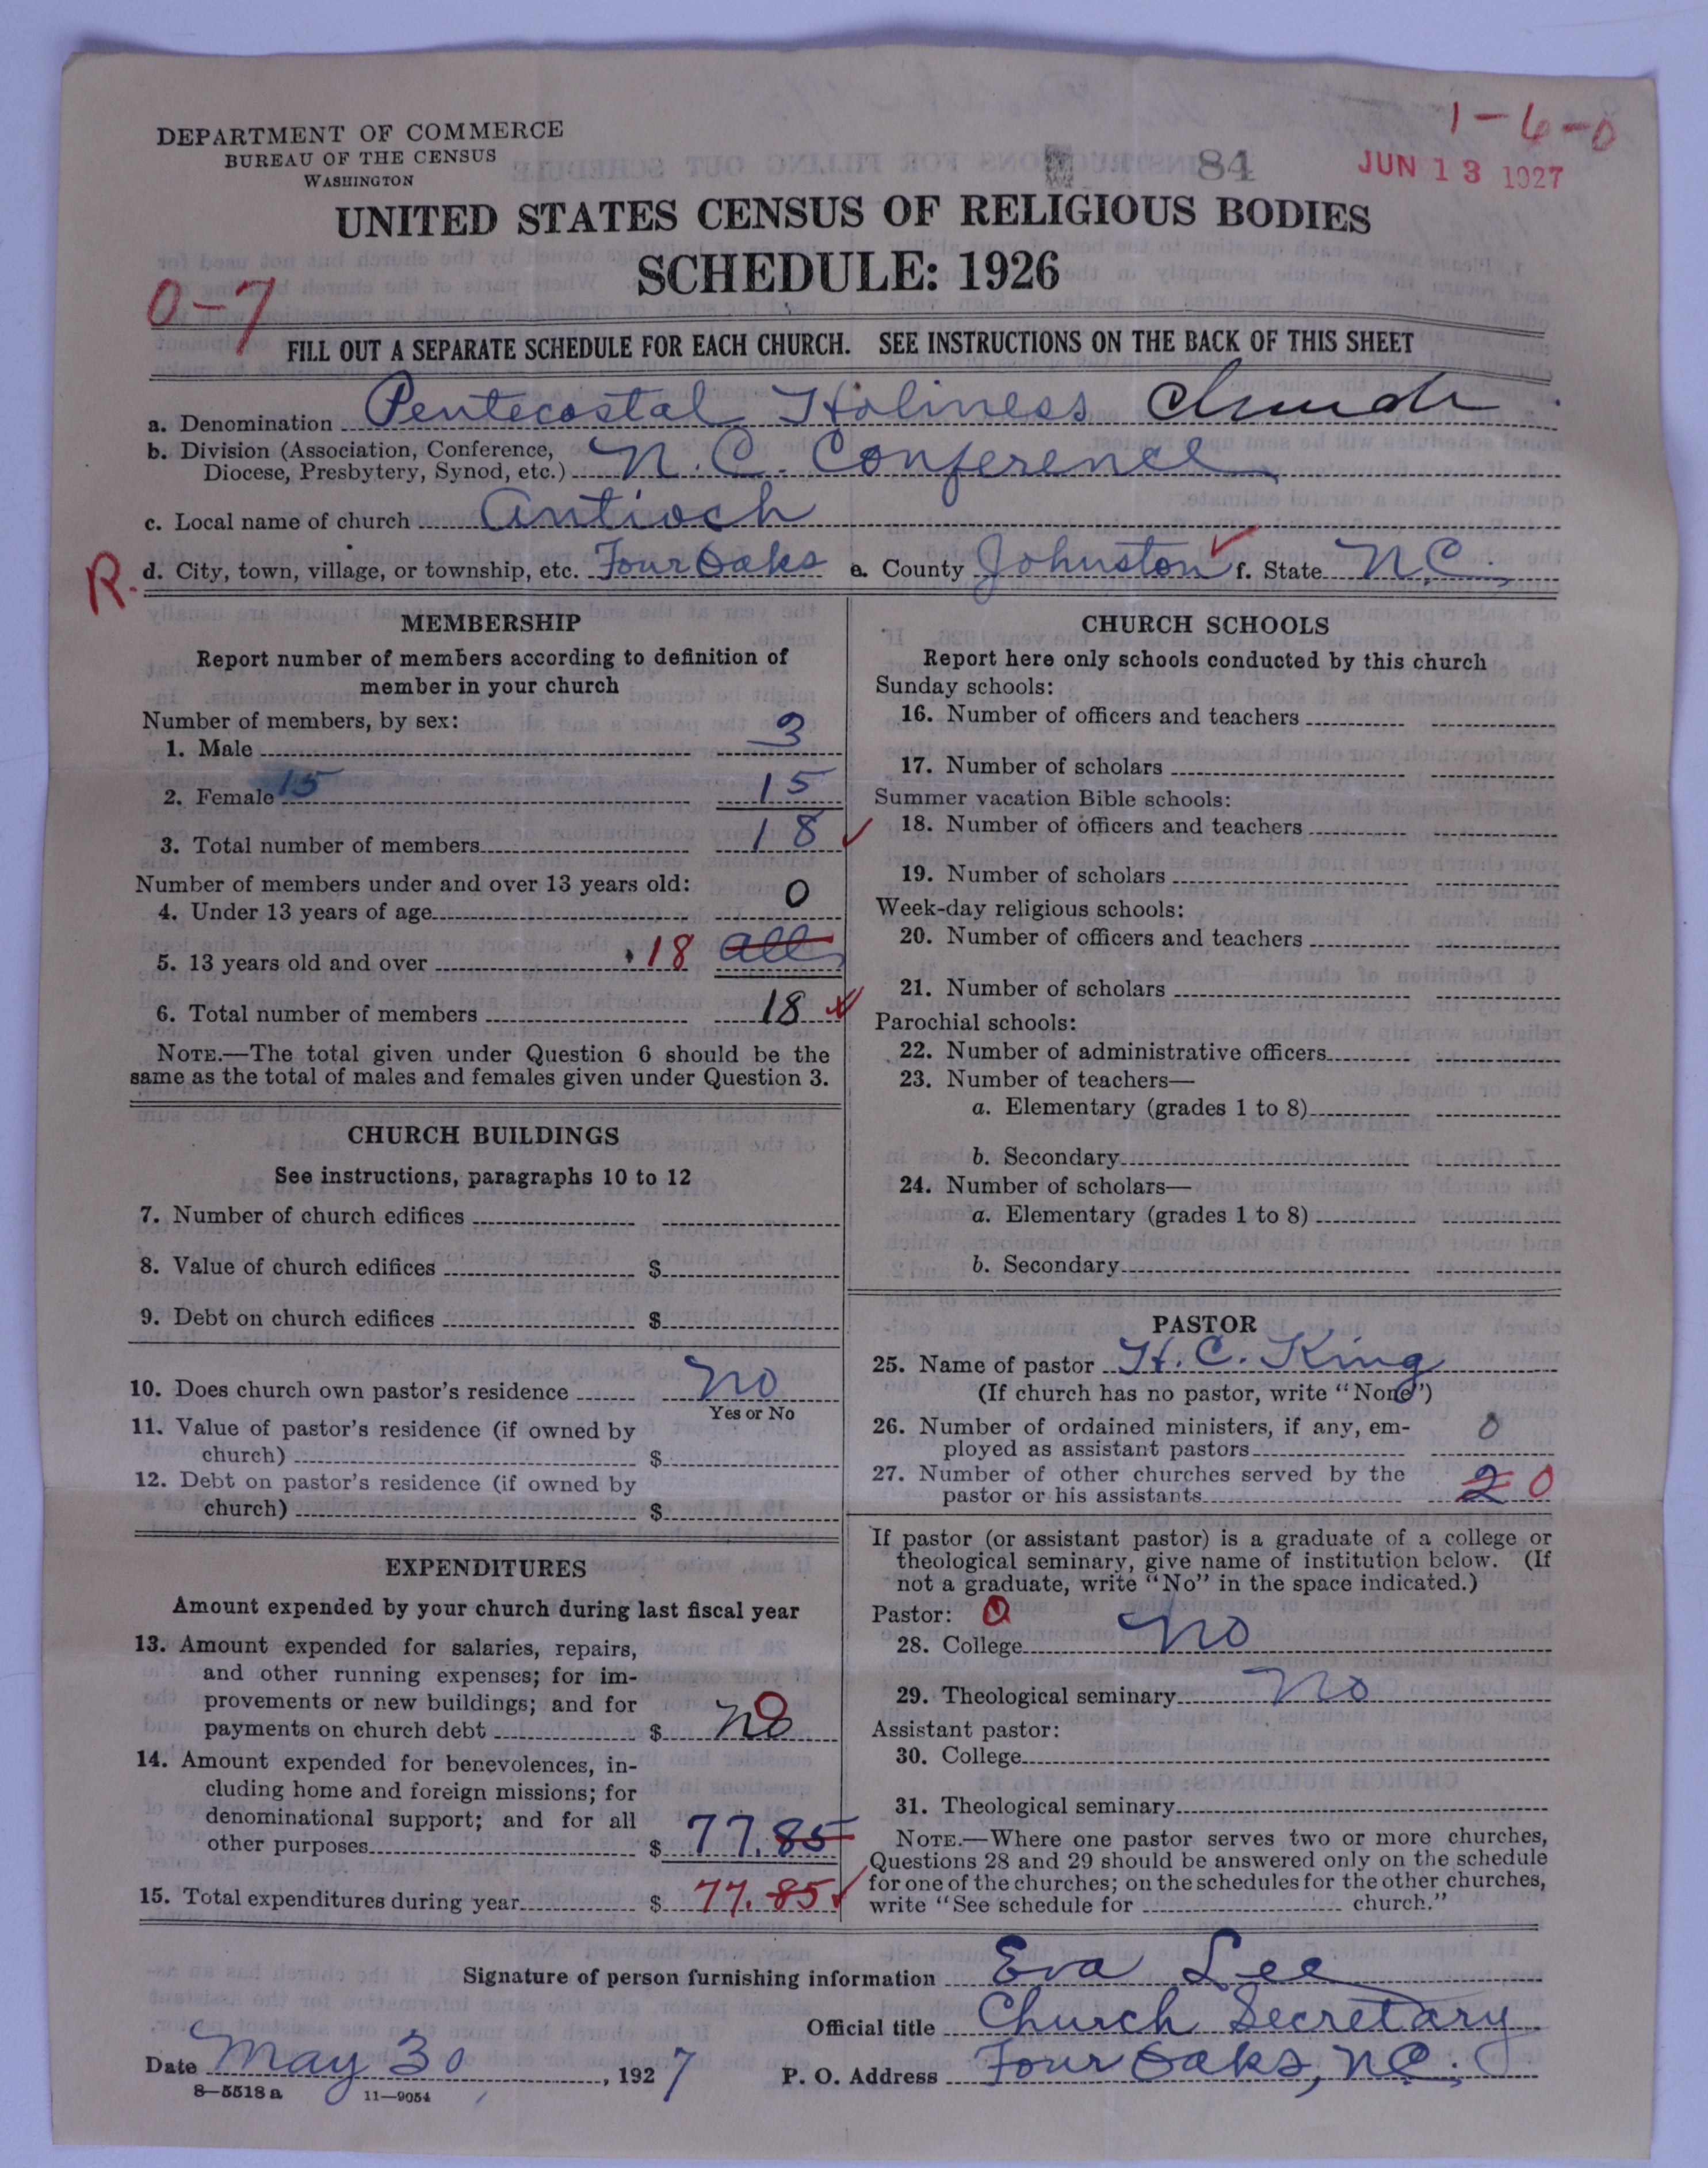 1-6-0
DEPARTMENT OF COMMERCE
BUREAU OF THE CENSUS
WASHINGTON
84
JUN 13 1927
UNITED STATES CENSUS OF RELIGIOUS BODIES
SCHEDULE: 1926
0-7
FILL OUT A SEPARATE SCHEDULE FOR EACH CHURCH. SEE INSTRUCTIONS ON THE BACK OF THIS SHEET
a. Denomination Pentecostal Holiness Church
b. Division (Association, Conference,
Diocese, Presbytery, Synod, etc.) N.C. Conference
c. Local name of church Antioch
R. d. City, town, village, or township, etc. Four Oaks e. County Johnston f. State N.C.
MEMBERSHIP
Report number of members according to definition of
member in your church
Number of members, by sex:
1. Male 3
2. Female 15 15
3. Total number of members 18
Number of members under and over 13 years old:
4. Under 13 years of age 0
5. 13 years old and over 18 all
6. Total number of members 18
NOTE.—The total given under Question 6 should be the
same as the total of males and females given under Question 3.
CHURCH BUILDINGS
See instructions, paragraphs 10 to 12
7. Number of church edifices
8. Value of church edifices $
9. Debt on church edifices $
10. Does church own pastor's residence No
Yes or No
11. Value of pastor's residence (if owned by
church) $
12. Debt on pastor's residence (if owned by
church) $
EXPENDITURES
Amount expended by your church during last fiscal year
13. Amount expended for salaries, repairs,
and other running expenses; for im-
provements or new buildings; and for
payments on church debt $ no 0
14. Amount expended for benevolences, in-
cluding home and foreign missions; for
denominational support; and for all
other purposes $ 77.85
15. Total expenditures during year $ 77.85
CHURCH SCHOOLS
Report here only schools conducted by this church
Sunday schools:
16. Number of officers and teachers
17. Number of scholars
Summer vacation Bible schools:
18. Number of officers and teachers
19. Number of scholars
Week-day religious schools:
20. Number of officers and teachers
21. Number of scholars
Parochial schools:
22. Number of administrative officers
23. Number of teachers—
a. Elementary (grades 1 to 8)
b. Secondary
24. Number of scholars—
a. Elementary (grades 1 to 8)
b. Secondary
PASTOR
25. Name of pastor H. C. King
(If church has no pastor, write "None")
26. Number of ordained ministers, if any, em-
ployed as assistant pastors 0
27. Number of other churches served by the
pastor or his assistants 2 0
If pastor (or assistant pastor) is a graduate of a college or
theological seminary, give name of institution below. (If
not a graduate, write "No" in the space indicated.)
Pastor:
28. College No
29. Theological seminary No
Assistant pastor:
30. College
31. Theological seminary
NOTE.—Where one pastor serves two or more churches,
Questions 28 and 29 should be answered only on the schedule
for one of the churches; on the schedules for the other churches,
write "See schedule for church."
Signature of person furnishing information Eva Lee
Official title Church Secretary
Date May 30, 1927 P. O. Address Four Oaks, N.C.
8—5518 a 11—9054